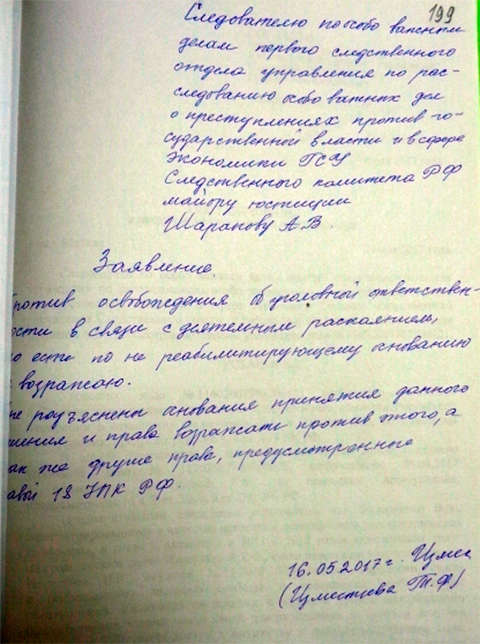 199
Следователю по особо важным
делам первого следственного
отдела управления по рас-
следованию особо важных дел
о преступлениях против го-
сударственной власти и в сфере
экономики ГСУ
Следственного комитета РФ
майору юстиции
Шарапову А.В.
Заявление
против освобождения от уголовной ответствен-
ости в связи с деятельным раскаянием,
о есть по не реабилитирующему основанию
возражаю.
не разъяснены основания принятия данного
шения и право возражать против этого, а
ак же другие права, предусмотренные
авой 18 УПК РФ.
16.05.2017 г.
(Цуместева Т.Ф)